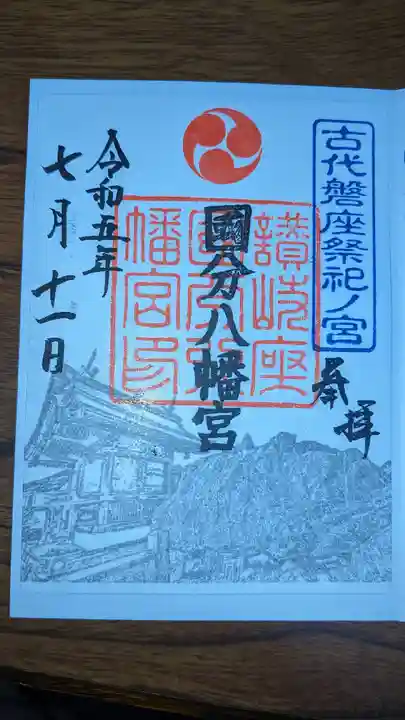 古代磐座祭祀ノ宮
奉拝
讃岐座
國分八
幡宮印
國分八幡宮
令和五年
七月十一日